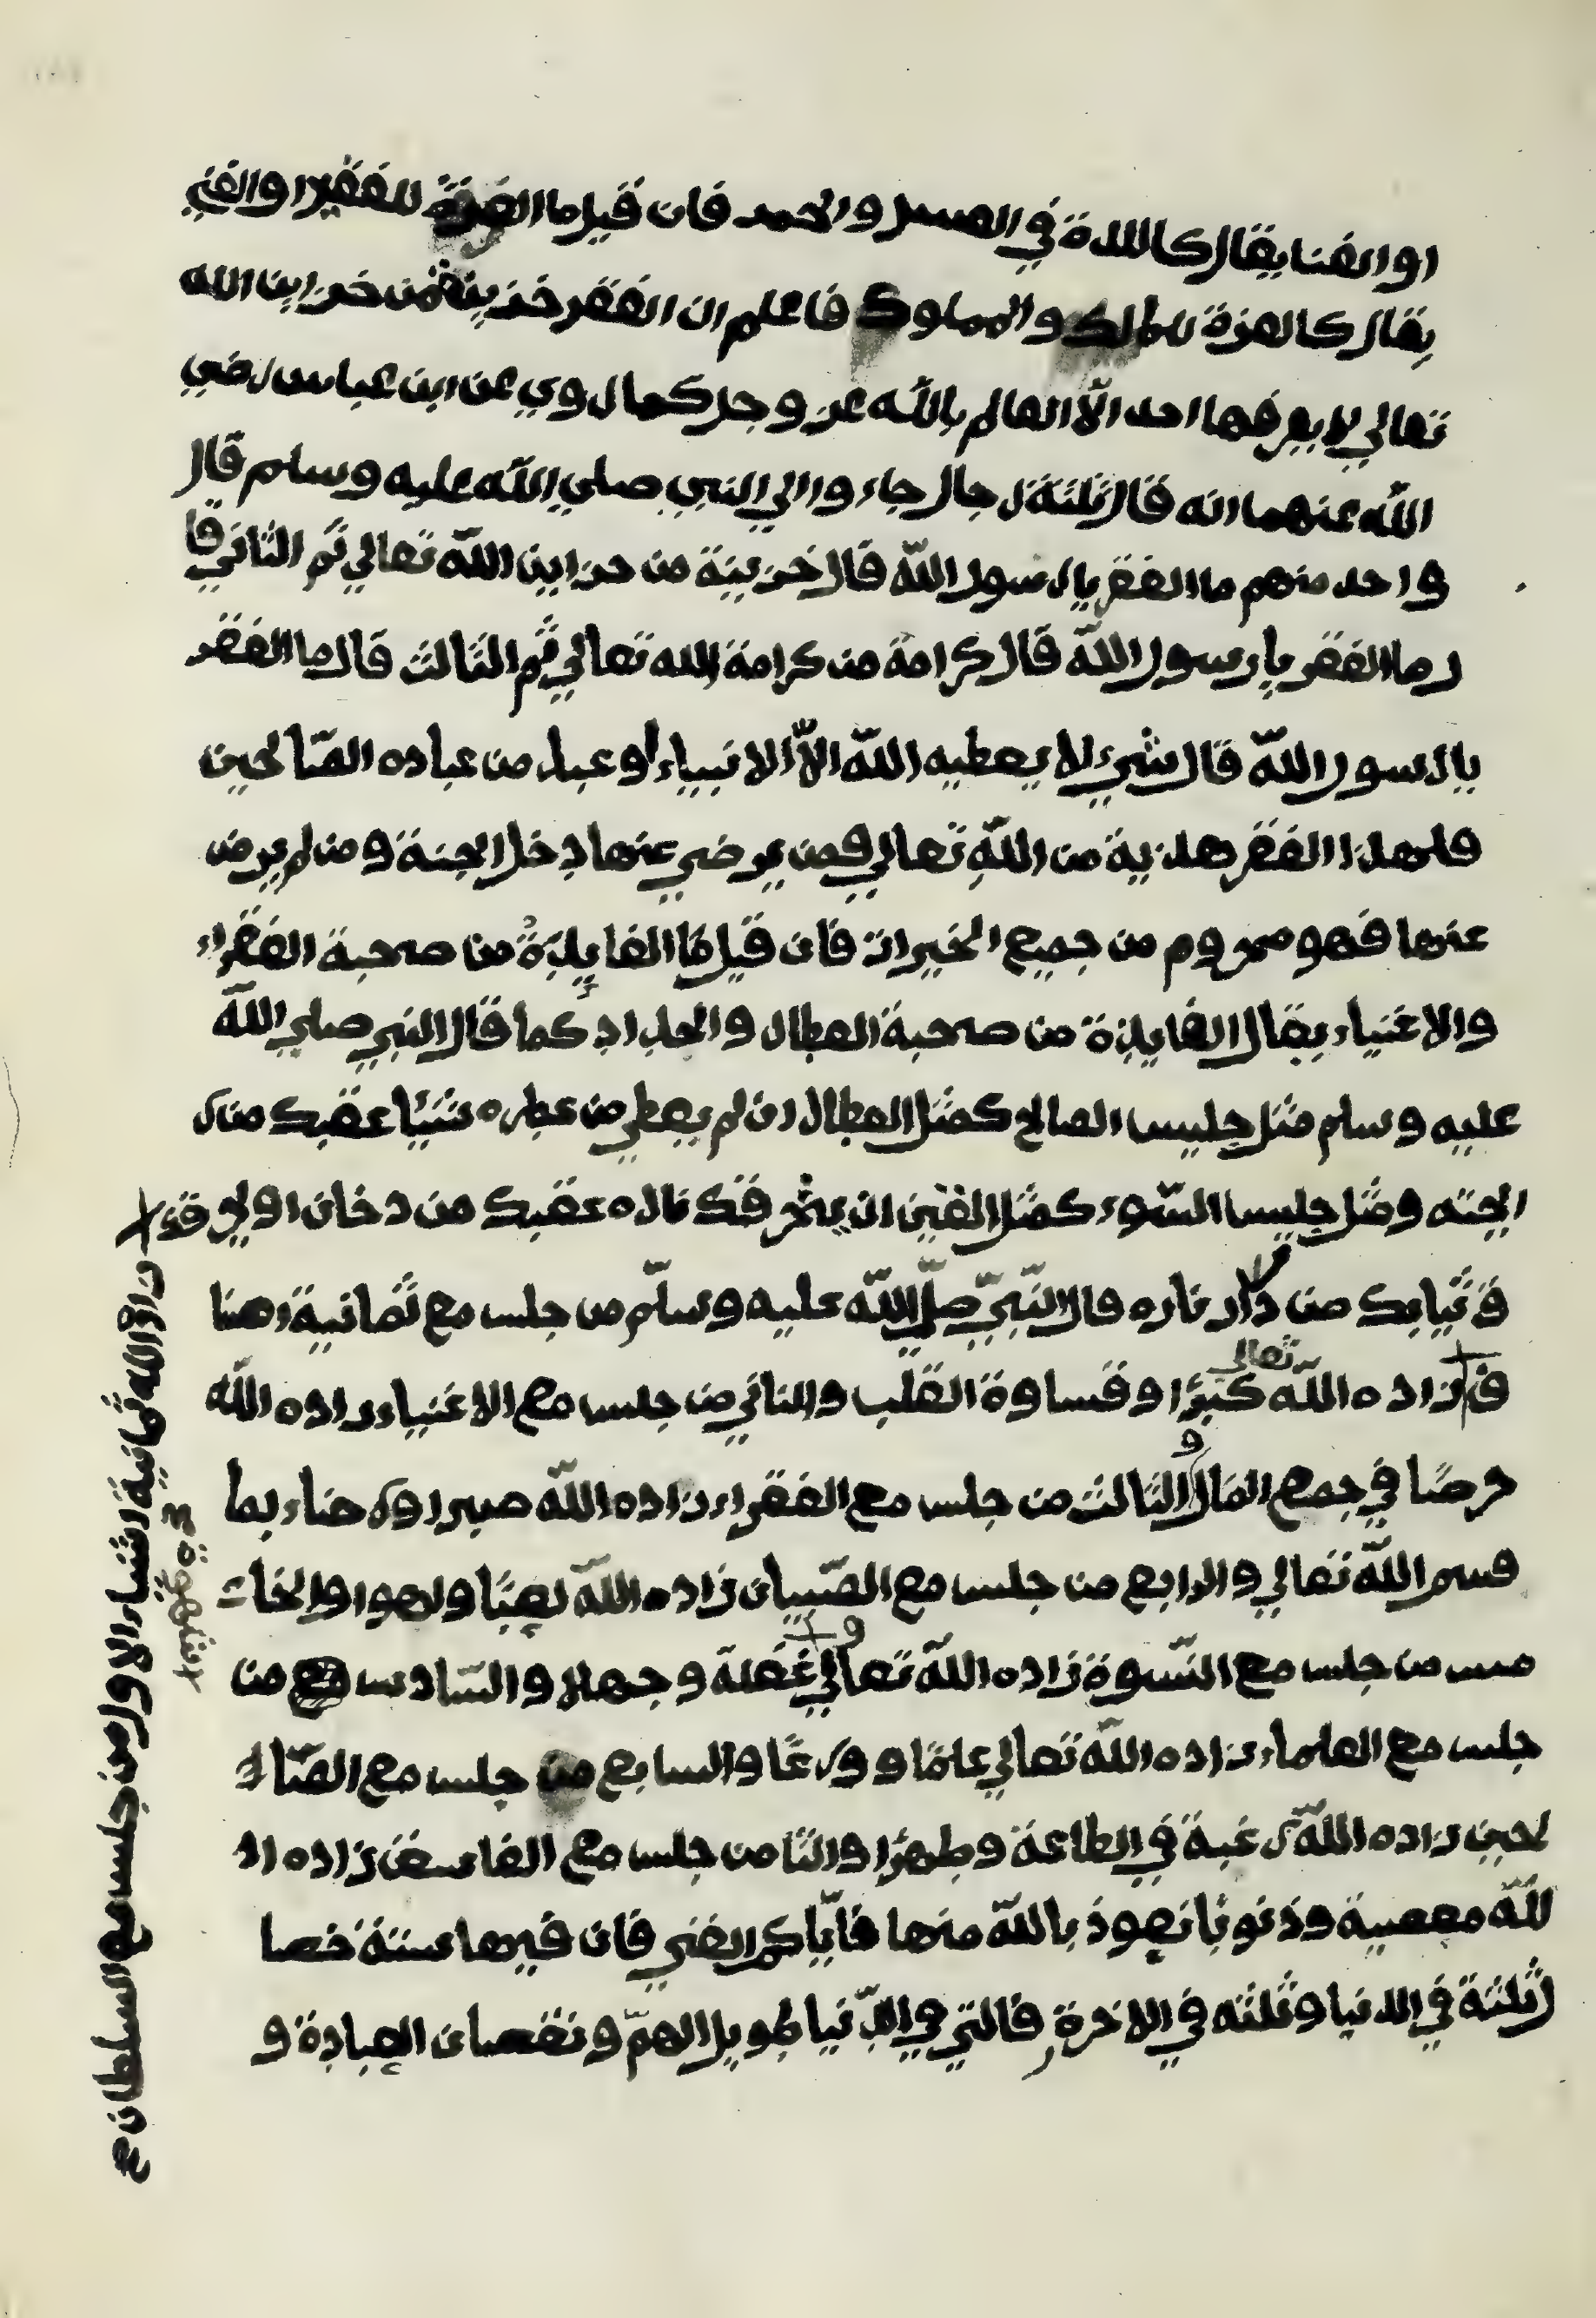 او الغنا يقال كاللدة في العسل والحمد فان قيل ما العزة للفقير او الغني
يقال كالعزة للمالك والمملوك فاعلم ان الفقر خزينة من خزاين الله
تعالي لا يعرفها احد الّا العالم بالله عز وجل كما روي عن ابن عباس رضي
الله عنهما انه قال ثلثة رجال جاءوا الي النبي صلي الله عليه وسلم قال
واحد منهم ما الفقر يا رسول الله قال خزينة من خزاين الله تعالي ثم الثاني قا
ل ما الفقر يا رسول الله قال كرامة من كرامة الله تعالي ثم الثالث قال ما الفقر
يا رسول الله قال شيء لا يعطيه الله الّا الانبياء او عبد من عباده الصّالحين
فلهذا الفقر هدية من الله تعالي فمن يرضي عنها دخل الجنة ومن لم يرض
عنها فهو محروم من جميع الخيرات فان قيل ما الفايدة من صحبة الفقراء
والاغنياء يقال الفايدة من صحبة العطار والحداد كما قال النبي صلي الله
عليه وسلم مثل جليس الصالح كمثل العطار ان لم يعطي من عطره شئيا عقبك من ر
ايحته ومثل جليس السّوء كمثل القين ان يحرقك ناره عقبك من دخان اولي وقع
في ثيابك من نار ناره قال النّبيّ صلّي الله عليه وسلّم من جلس مع ثمانية اصنا
ف زاده الله تعالي كبرًا وقساوة القلب والثاني من جلس مع الاغنياء زاده الله
حرصًا في جمع المال والثالث من جلس مع الفقراء زاده الله صبرا ورضاء بما
قسم الله تعالي والرابع من جلس مع الصّبيان زاده الله لعبًا ولهوا والخا
مس من جلس مع النّسوة زاده الله تعالي غفلة وجهلا والسّادس من
جلس مع العلماء زاده الله تعالي علمًا وورعًا والسابع من جلس مع الصّا
لحين زاده الله رغبة في الطاعة وطهرًا والثامن جلس مع الفاسقن زاده ا
لله معصية وذنوبا نعوذ بالله منها فايّاكم الغني فان فيها ستة خصا
ل ثلثة في الدنيا وثلثه في الاخرة فالتي في الدّنيا طويل الهمّ ونقصان العبادة و
زاده الله ثمانية اشياء الاول من جلس مع السلطان صح